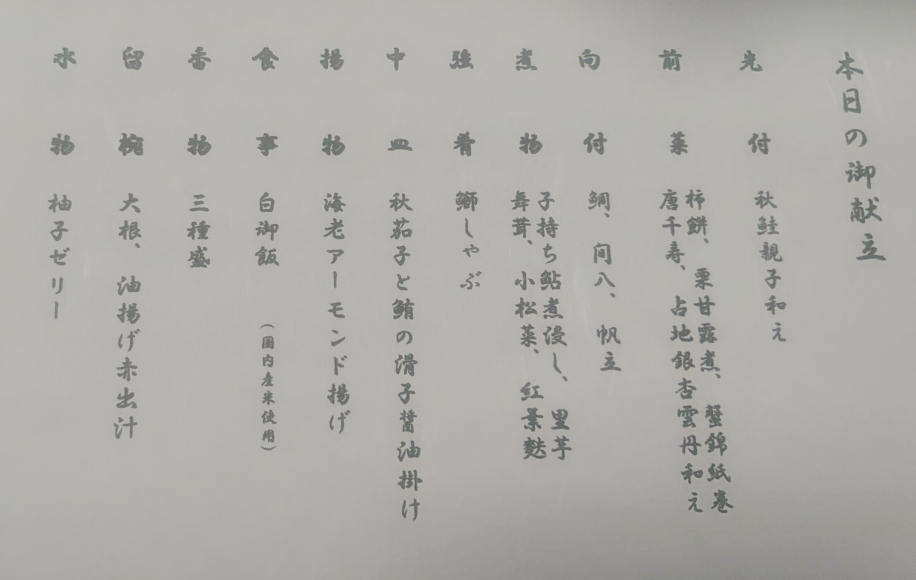 本日の御献立
先付 秋鮭親子和え
前菜 柿餅、栗甘露煮、蟹錦紙巻
唐千寿、占地銀杏雲丹和え
向付 鯛、間八、帆立
煮物 子持ち鮎煮浸し、里芋
舞茸、小松菜、紅葉麩
強肴 鰤しゃぶ
中皿 秋茄子と鮪の滑子醤油掛け
揚物 海老アーモンド揚げ
食事 白御飯 (国内産米使用)
香物 三種盛
留椀 大根、油揚げ赤出汁
水物 柚子ゼリー